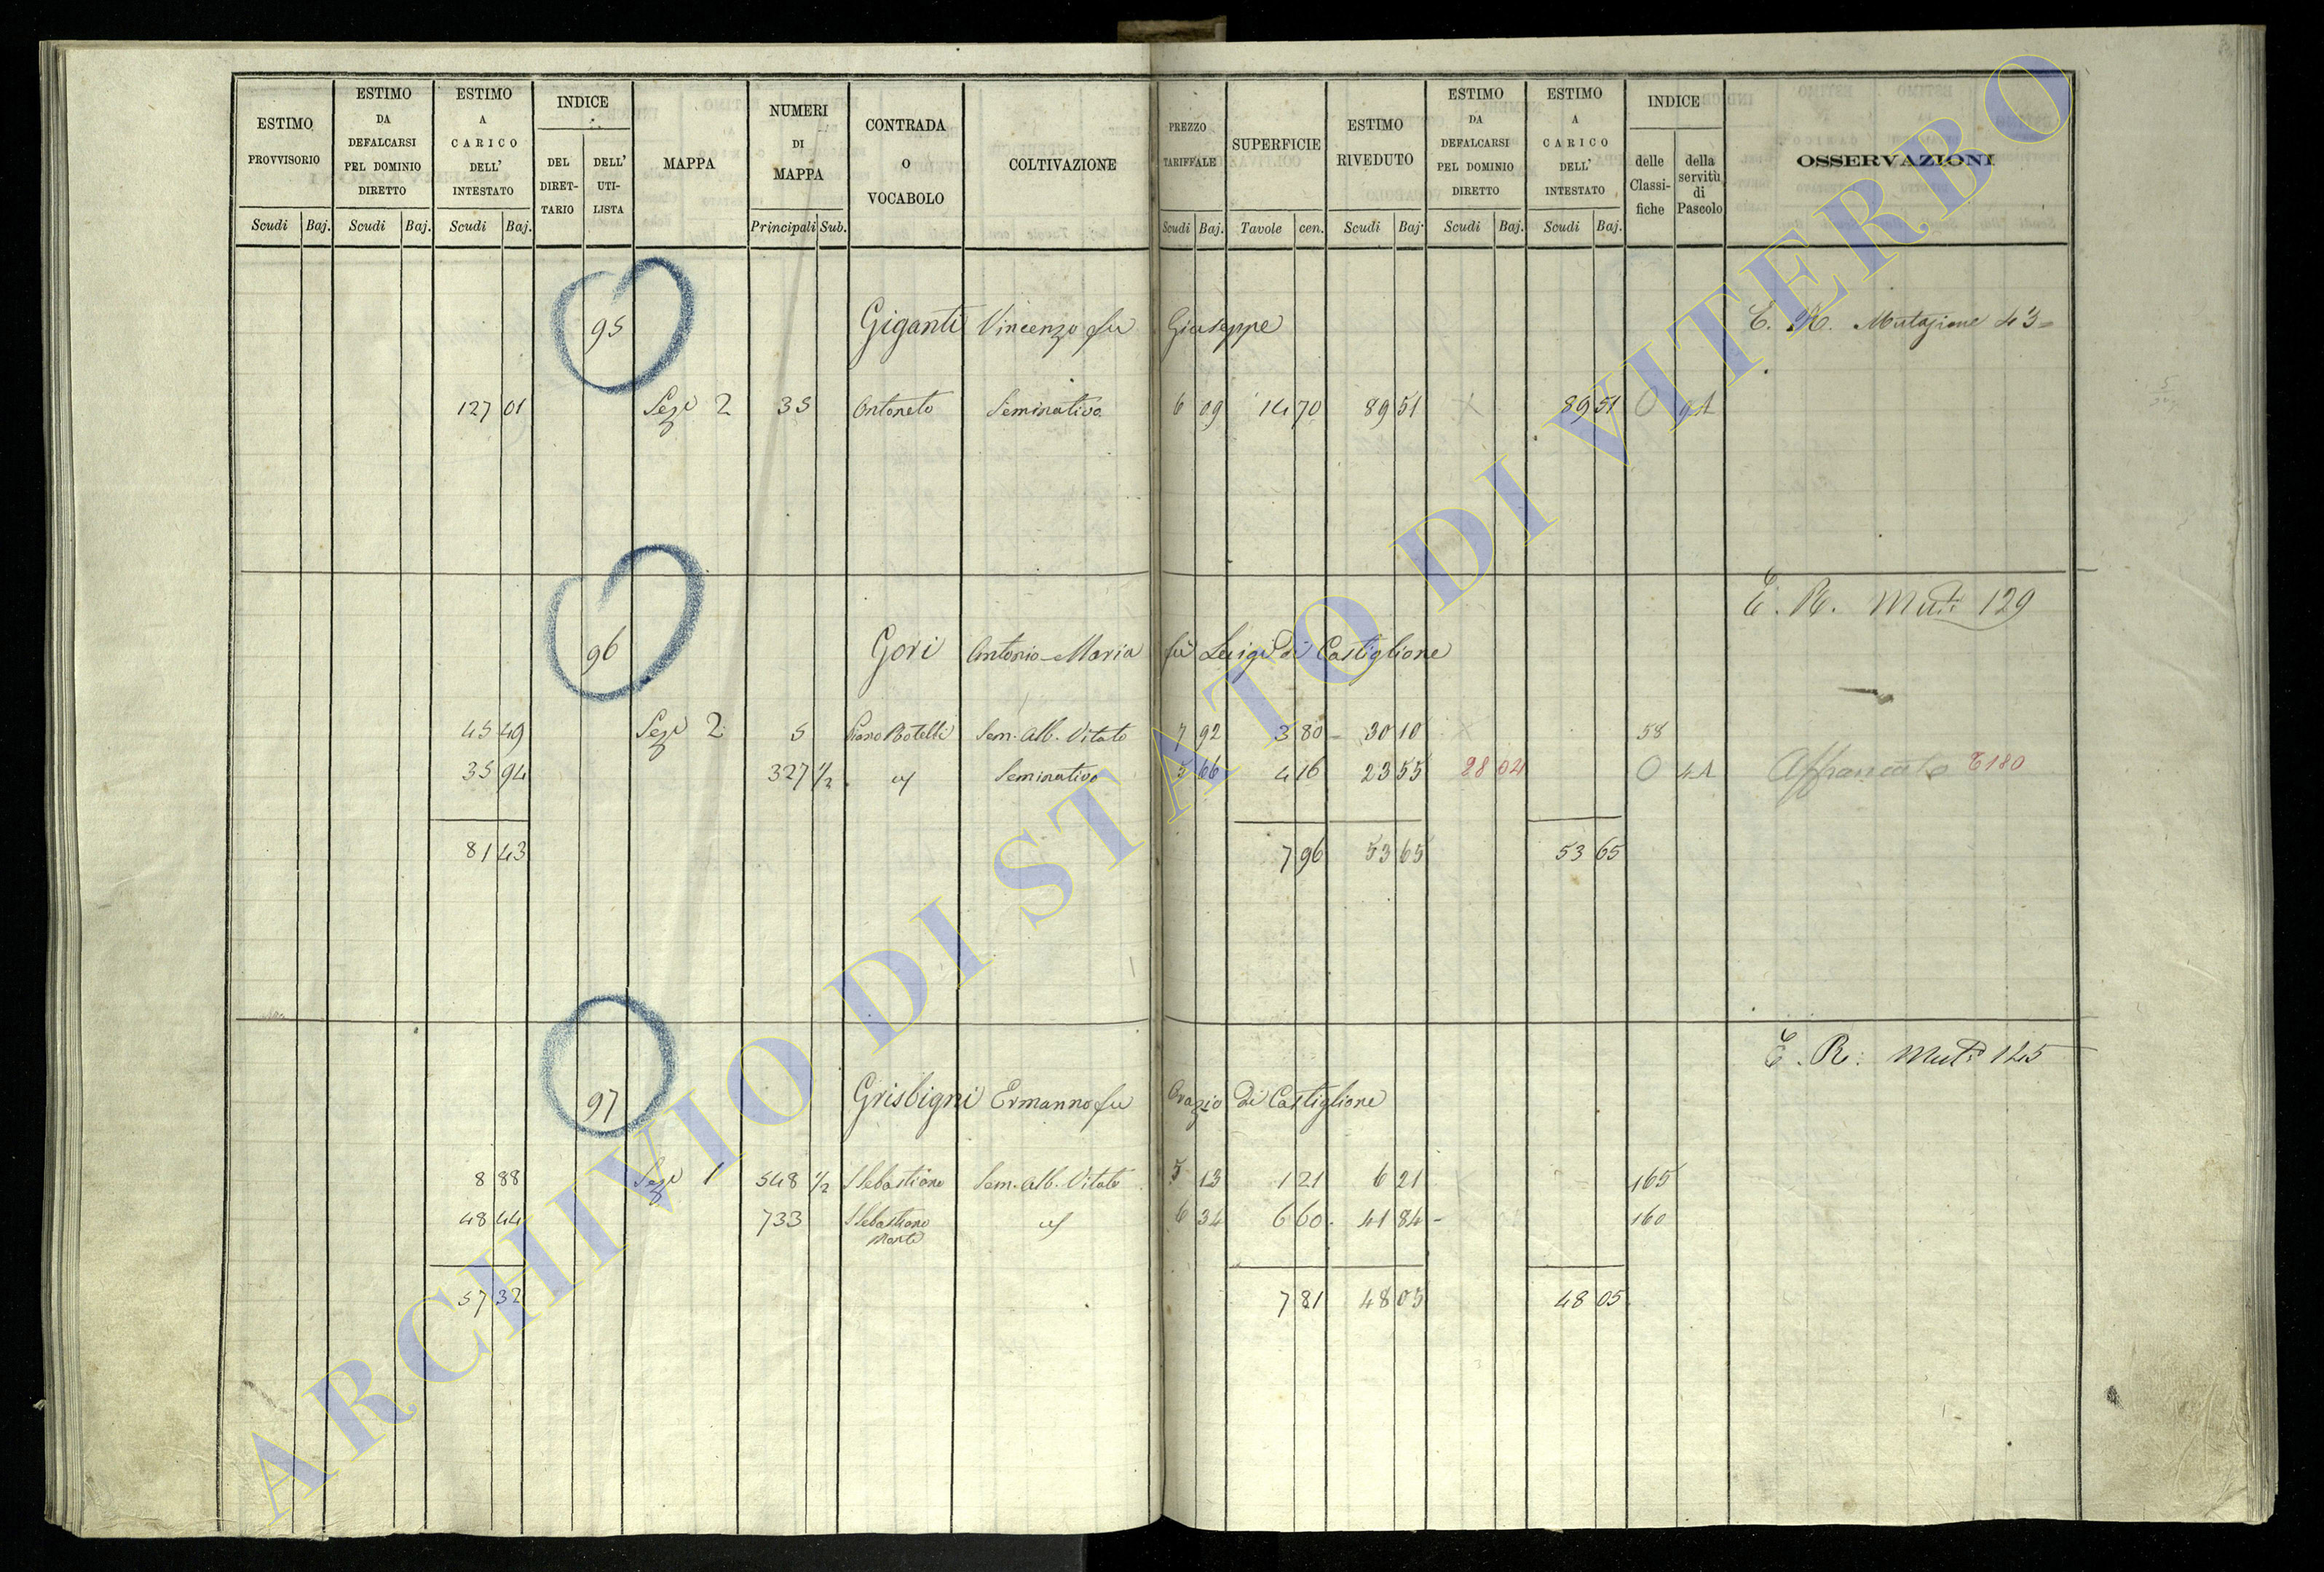 ESTIMO PROVVISORIO Scudi Baj.
ESTIMO DA DEFALCARSI PEL DOMINIO DIRETTO Scudi Baj.
ESTIMO A CARICO DELL' INTESTATO Scudi Baj.
INDICE DEL DIRET- TARIO DELL' UTI- LISTA
MAPPA
NUMERI DI MAPPA Principali Sub.
CONTRADA O VOCABOLO
COLTIVAZIONE
PREZZO TARIFFALE Scudi Baj.
SUPERFICIE Tavole cen.
ESTIMO RIVEDUTO Scudi Baj.
ESTIMO DA DEFALCARSI PEL DOMINIO DIRETTO Scudi Baj.
ESTIMO A CARICO DELL' INTESTATO Scudi Baj.
INDICE delle Classi- fiche della servitù di Pascolo
OSSERVAZIONI
95 Giganti Vincenzo fu Giuseppe E. R. Mutazione 43
127 01 Sez 2 35 Antoneto Seminativo 6 09 14 70 89 51 89 51 0
E. R. Mut. 129
96 Gori Antonio Maria fu Luigi di Castiglione
45 49 Sez 2 5 Piano Botelli Sem. Alb. Vitato 7 92 3 80 30 10 58
35 94 327 1/2 Seminativo 5 66 4 16 23 55 28 04 0 Affrancato E180
81 43 7 96 53 65 53 65
E. R. Mut. 145
97 Grisbigni Ermanno fu Orazio di Castiglione
8 88 Sez 1 548 1/2 S Sebastiano Sem. Alb. Vitato 5 13 1 21 6 21 165
48 44 733 S Sebastiano 6 34 6 60 41 84 160
57 32 7 81 48 05 48 05
ARCHIVIO DI STATO DI VITERBO